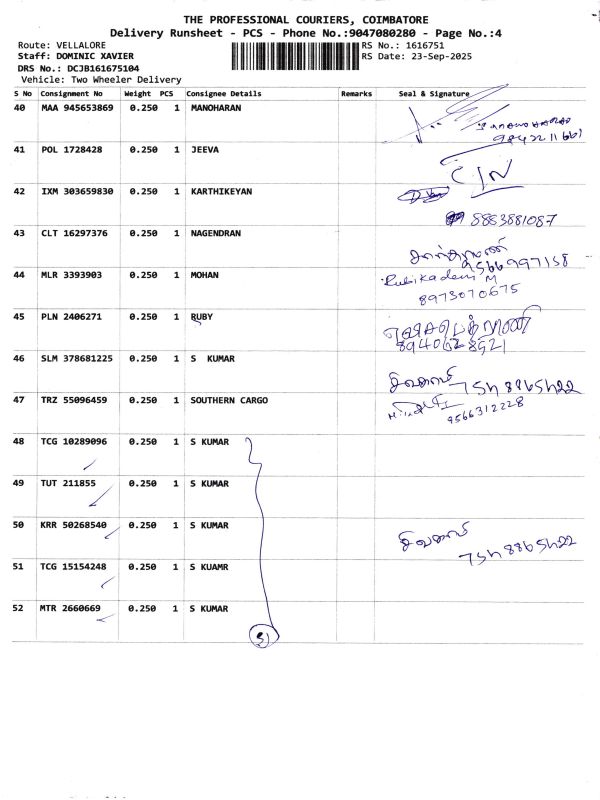 THE PROFESSIONAL COURIERS, COIMBATORE
Delivery Runsheet - PCS - Phone No.:9047080280 - Page No.:4
Route: VELLALORE
Staff: DOMINIC XAVIER
DRS No.: DCJB161675104
Vehicle: Two Wheeler Delivery
RS No.: 1616751
RS Date: 23-Sep-2025
S No Consignment No Weight PCS Consignee Details Remarks Seal & Signature
40 MAA 945653869 0.250 1 MANOHARAN
9842211661
41 POL 1728428 0.250 1 JEEVA
42 IXM 303659830 0.250 1 KARTHIKEYAN
8883881087
43 CLT 16297376 0.250 1 NAGENDRAN
9566997158
44 MLR 3393903 0.250 1 MOHAN
8973070675
45 PLN 2406271 0.250 1 RUBY
46 SLM 378681225 0.250 1 S KUMAR
சிவகாமி 7548865422
47 TRZ 55096459 0.250 1 SOUTHERN CARGO
9566312228
48 TCG 10289096 0.250 1 S KUMAR
49 TUT 211855 0.250 1 S KUMAR
50 KRR 50268540 0.250 1 S KUMAR
சிவகாமி 7548865422
51 TCG 15154248 0.250 1 S KUAMR
52 MTR 2660669 0.250 1 S KUMAR